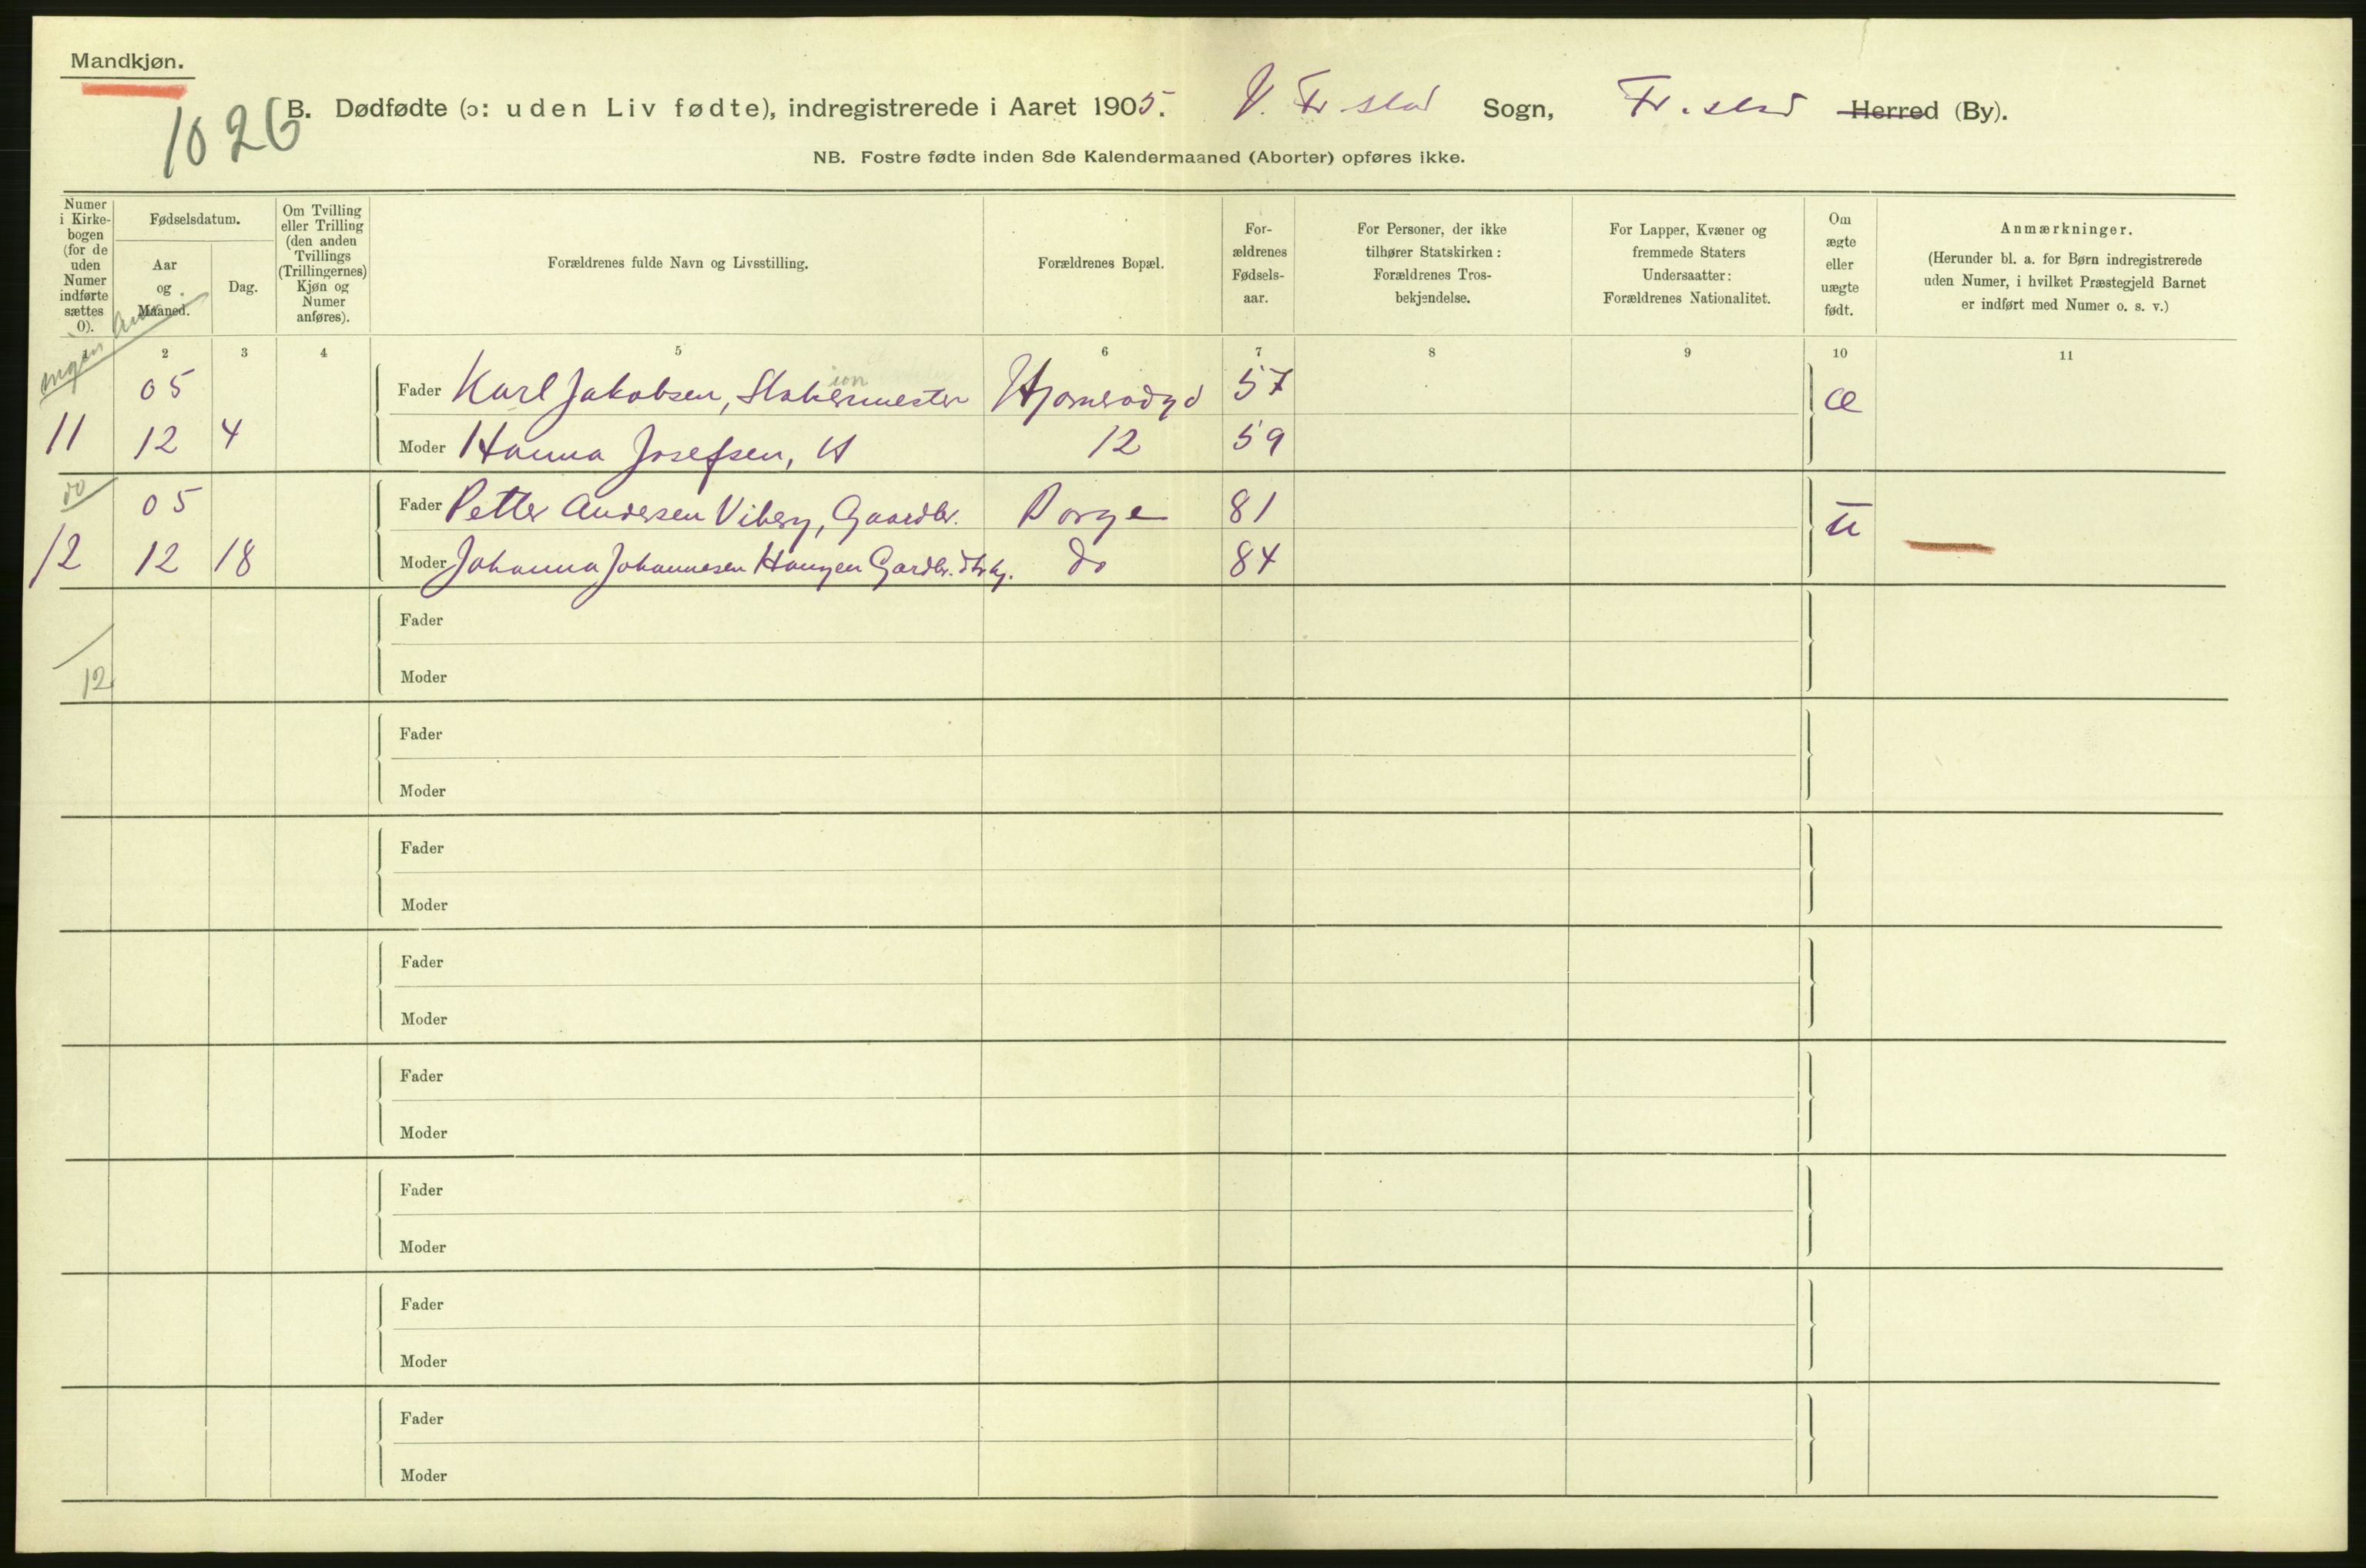 Mandkjøn.
1026
B. Dødfødte (ɔ: uden Liv fødte), indregistrerede i Aaret 1905. V. Fr.stad Sogn, Fr.stad Herred (By).
NB. Fostre fødte inden 8de Kalendermaaned (Aborter) opføres ikke.
Numer i Kirkebogen (for de uden Numer indførte sættes 0).
Fødselsdatum.
Aar og Maaned.
Dag.
Om Tvilling eller Trilling (den anden Tvillings (Trillingernes) Kjøn og Numer anføres).
Forældrenes fulde Navn og Livsstilling.
Forældrenes Bopæl.
For-
ældrenes
Fødsels-
aar.
For Personer, der ikke
tilhører Statskirken:
Forældrenes Tros-
bekjendelse.
For Lapper, Kvæner og
fremmede Staters
Undersaatter:
Forældrenes Nationalitet.
Om
ægte
eller
uægte
født.
Anmærkninger.
(Herunder bl. a. for Børn indregistrerede
uden Numer, i hvilket Præstegjeld Barnet
er indført med Numer o. s. v.)
1 2 3 4 5 6 7 8 9 10 11
ingen
05 Fader Karl Jakobsen, 57 æ
11 12 4 Moder Hanna Josefsen, H 12 59
do
05 Fader Petter Andersen Viberg, Gaardbr. Borge 81 u
12 12 18 Moder Johanna Johannesen Haugen Gardbr. do 84
Fader
12
Moder
Fader
Moder
Fader
Moder
Fader
Moder
Fader
Moder
Fader
Moder
Fader
Moder
Fader
Moder